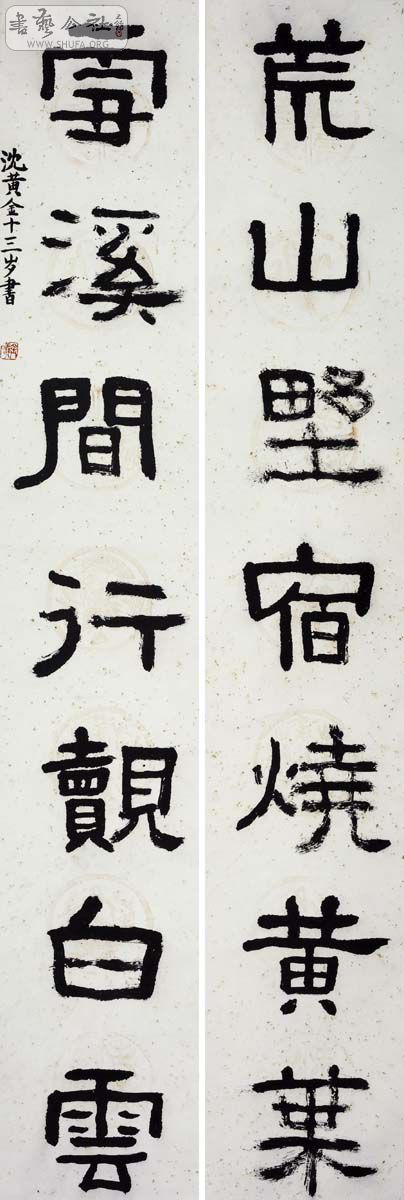 荒山野宿燒黄葉
溪間行覿白雲
沈黄金十三岁書
書藝公社
WWW.SHUFA.ORG